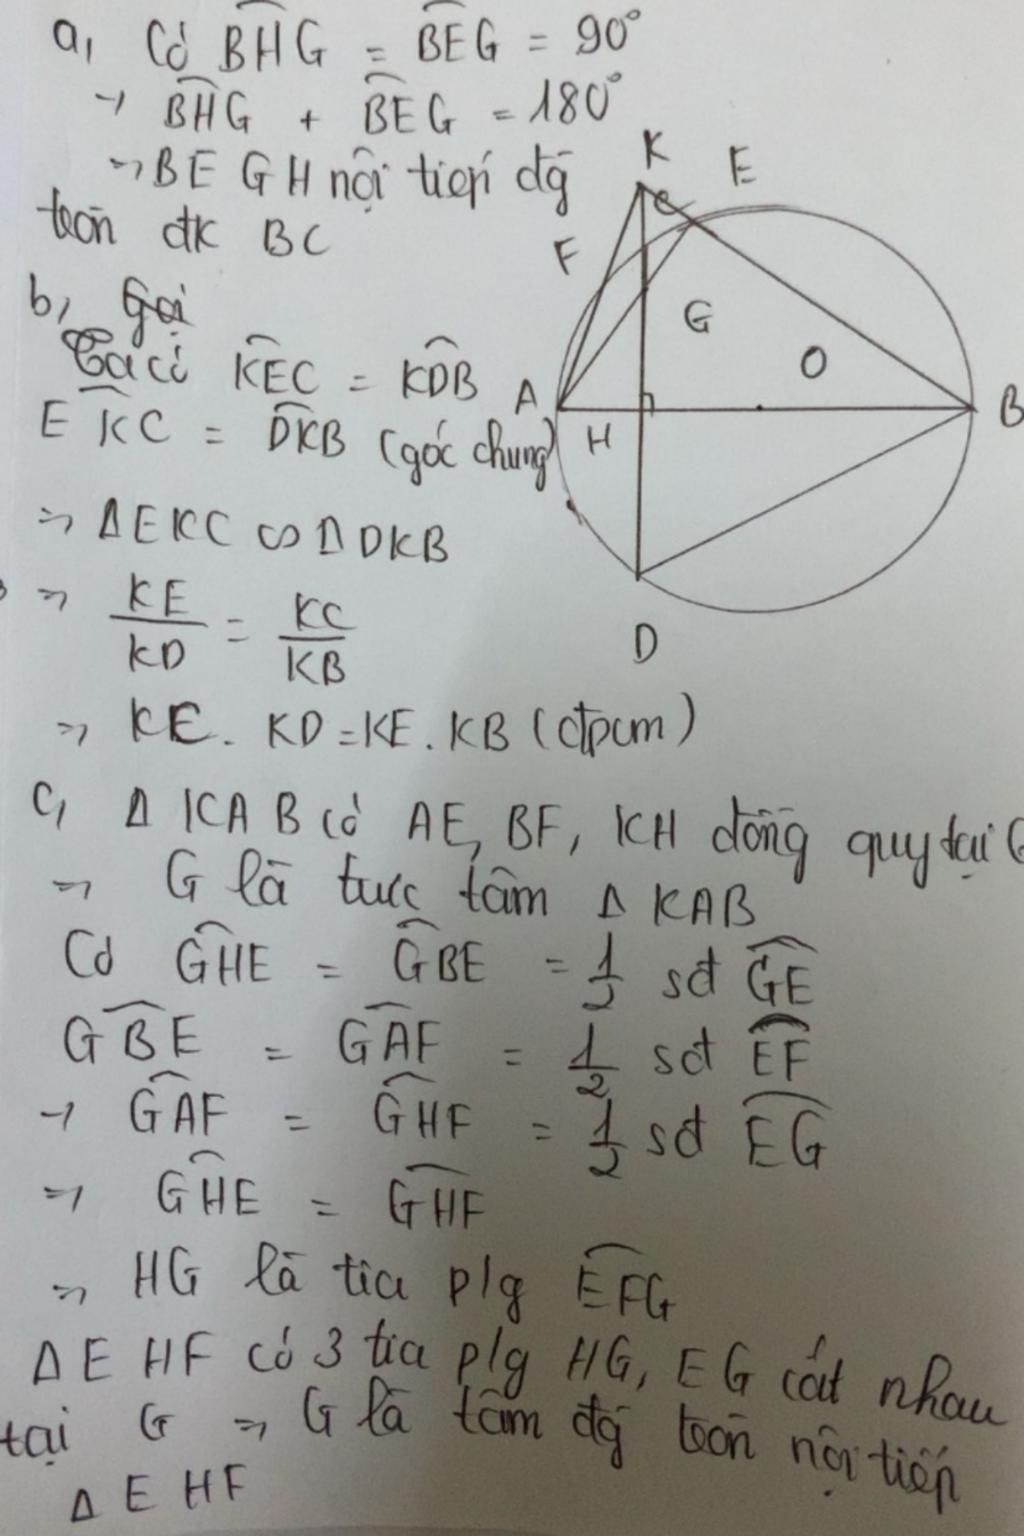 a, Có BHG = BEG = 90°
→ BHG + BEG = 180°
→ BE GH nội tiếp đg
tròn đk BC
K
E
C
F
G
O
A
B
H
D
b, Gọi
Ta có KEC = KDB
EKC = DKB (góc chung)
→ Δ EKC ∽ Δ DKB
→ KE/KD = KC/KB
→ KC. KD = KE. KB (đpcm)
c, Δ KAB có AE, BF, KH đồng quy tại G
→ G là trực tâm Δ KAB
Có GHE = GBE = 1/2 sđ GE
GBE = GAF = 1/2 sđ EF
→ GAF = GHF = 1/2 sđ EG
→ GHE = GHF
→ HG là tia p/g EFG
Δ E HF có 3 tia p/g HG, EG cắt nhau
tại G → G là tâm đg tròn nội tiếp
Δ E HF